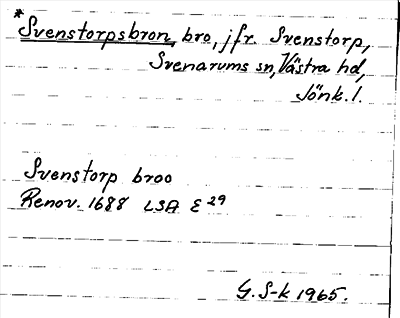 *Svenstorpsbron, bro, jfr. Svenstorp,
Svenarums sn, Västra hd,
Jönk. l.
Svenstorp broo
Renov. 1688 LSA E 29
G. S-k 1965.